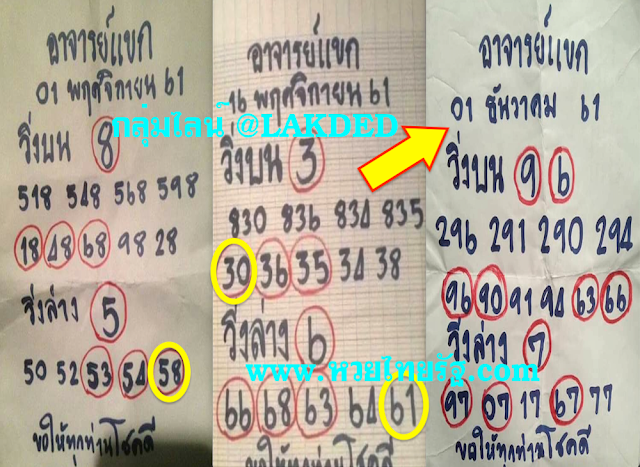 อาจารย์แขก
01 พฤศจิกายน 61
วิ่งบน 8
518 548 568 598
18 48 68 98 28
วิ่งล่าง 5
50 52 53 54 58
ขอให้ทุกท่านโชคดี
อาจารย์แขก
16 พฤศจิกายน 61
วิ่งบน 3
830 836 834 835
30 36 35 34 38
วิ่งล่าง 6
66 68 63 64 61
ขอให้ทุกท่านโชคดี
อาจารย์แขก
01 ธันวาคม 61
วิ่งบน 9 6
296 291 290 294
96 90 91 94 63 66
วิ่งล่าง 7
97 07 17 67 77
ขอให้ทุกท่านโชคดี
กลุ่มไลน์ @LAKDED
www.หวยไทยรัฐ.com